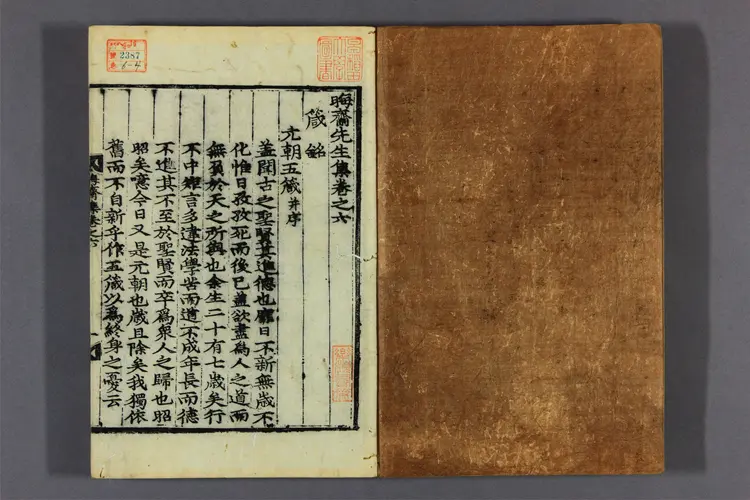 晦齋先生集卷之六
箴銘
元朝五箴 并序
蓋聞古之聖賢其進德也靡日不新無歲不
化惟日孜孜死而後已蓋欲盡爲人之道而
無負於天之所與也余生二十有七歲矣行
不中䂓言多違法學苦而道不成年長而德
不進其不至於聖賢而卒爲衆人之歸也昭
昭矣噫今日又是元朝也歲且除矣我獨依
舊而不自新乎作五箴以爲終身之憂云
一
2387
6-4